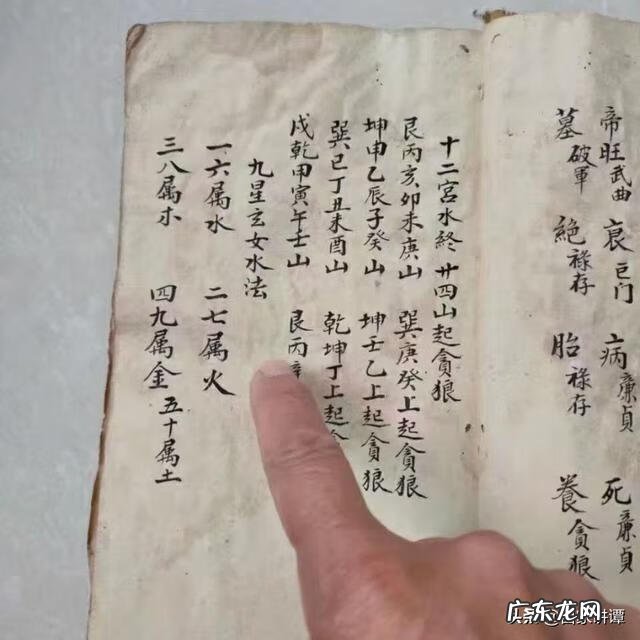 帝旺武曲 衰巨门 病廉貞 死廉貞
墓破軍 絕祿存 胎祿存 養貪狼
十二宮水終 廿四山起貪狼
艮丙亥卯未庚山 巽庚癸上起貪狼
坤申乙辰子癸山 坤壬乙上起貪狼
巽巳丁丑未酉山 乾坤丁上起
戌乾甲寅午壬山 艮丙
九星玄女水法
一六属水 二七属火
三八属木 四九属金 五十属土
讲谭
广东龙网